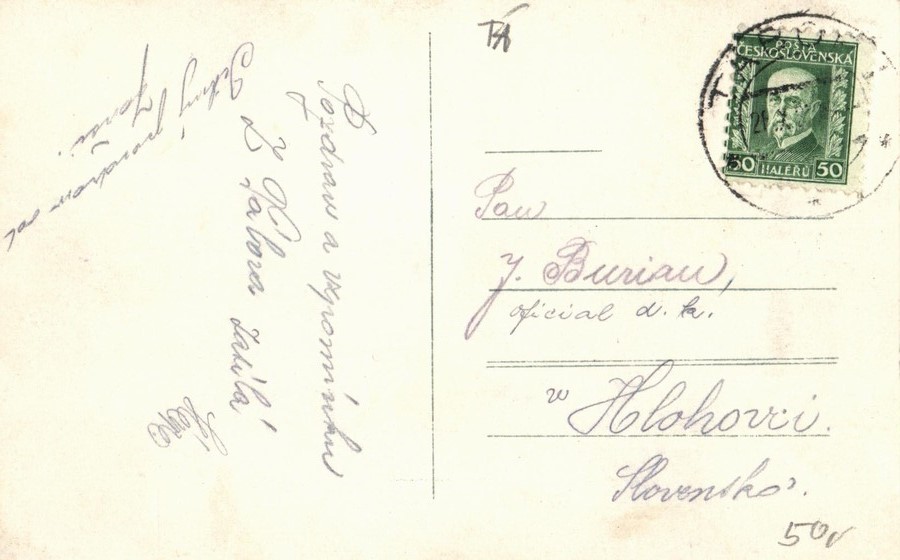 Pozdrav a vzpomínku
z Tábora zasílá
Srdečný pozdrav od
TÁ
TÁBOR
POŠTA
ČESKOSLOVENSKÁ
50 HALÉŘŮ 50
Pan
J. Burian,
oficial d. k.
v Hlohovci.
Slovensko.
50